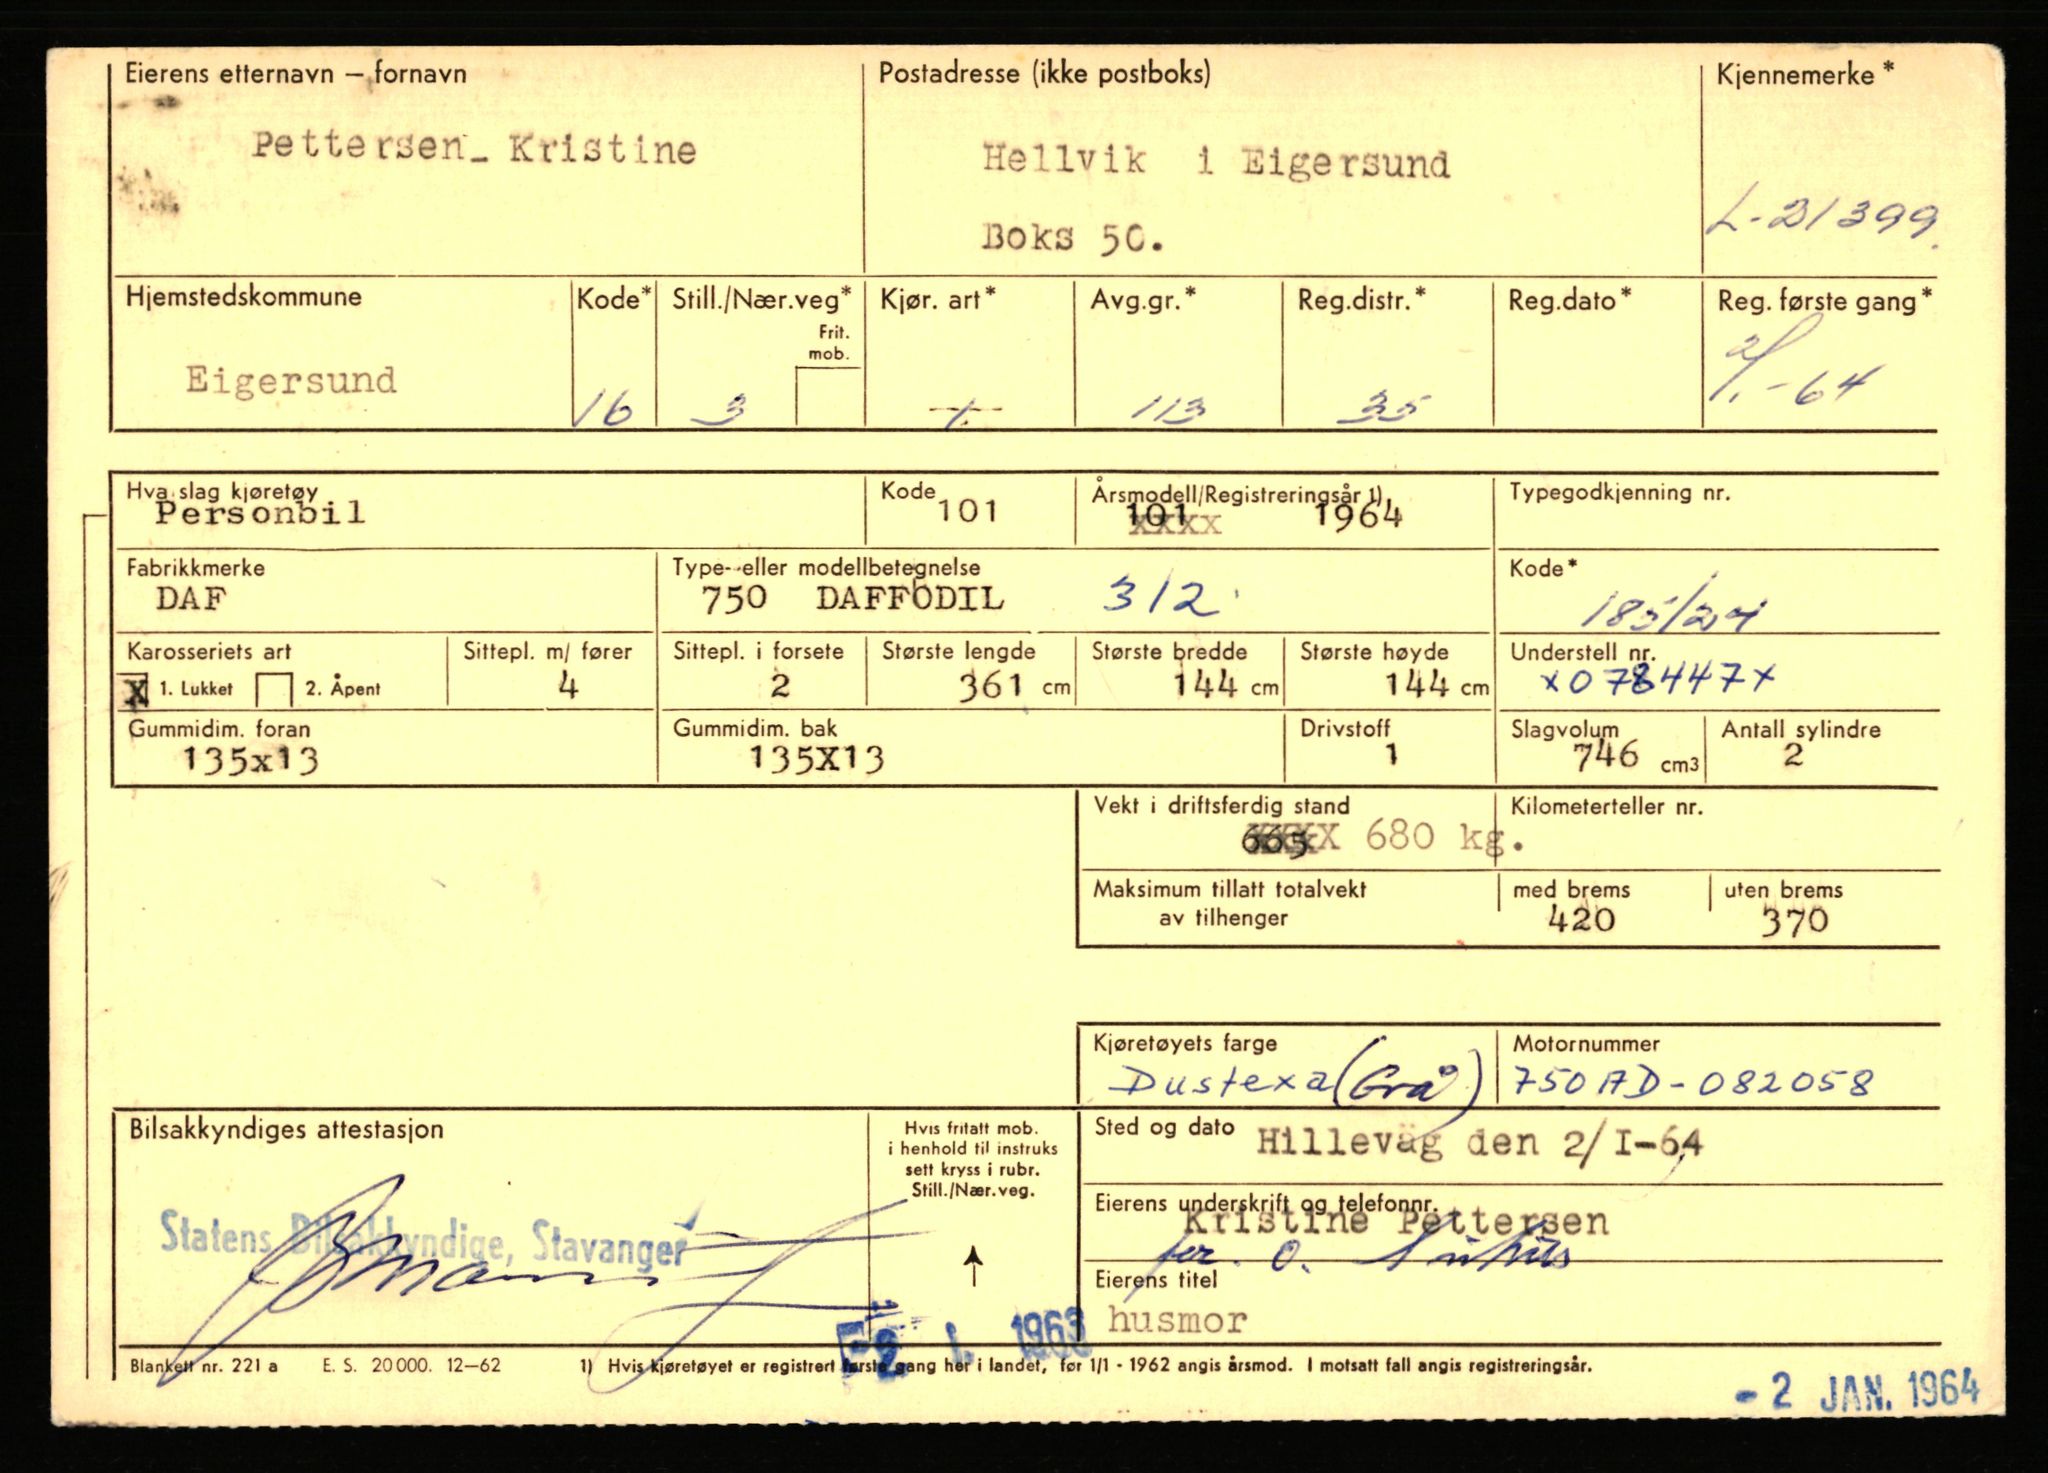 Eierens etternavn – fornavn
Pettersen_ Kristine
Postadresse (ikke postboks)
Hellvik i Eigersund
Boks 50.
Kjennemerke*
L-21399.
Hjemstedskommune
Eigersund
Kode*
16
Still./Nær.veg*
Frit.
mob.
3
Kjør. art*
1.
Avg.gr.*
113
Reg.distr.*
35
Reg.dato*
Reg. første gang*
2/1.-64
Hva slag kjøretøy
Personbil
Kode
101
Årsmodell/Registreringsår 1)
101 xxxx 1964
Typegodkjenning nr.
Fabrikkmerke
DAF
Type- eller modellbetegnelse
750 DAFFODIL 312
Kode*
185/24
Karosseriets art
X 1. Lukket 2. Åpent
Sittepl. m/ fører
4
Sittepl. i forsete
2
Største lengde
361 cm
Største bredde
144 cm
Største høyde
144 cm
Understell nr.
Gummidim. foran
135x13
Gummidim. bak
135X13
Drivstoff
1
Slagvolum
746 cm3
Antall sylindre
2
Vekt i driftsferdig stand
665 680 kg.
Kilometerteller nr.
Maksimum tillatt totalvekt
av tilhenger
med brems
420
uten brems
370
Kjøretøyets farge
Dustexa (Grå)
Motornummer
750AD-082058
Bilsakkyndiges attestasjon
Statens Bilsakkyndige, Stavanger
Hvis fritatt mob.
i henhold til instruks
sett kryss i rubr.
Still./Nær.veg.
Sted og dato
Hillevåg den 2/I-64
Eierens underskrift og telefonnr.
Kristine Pettersen
for. O.
Eierens titel
husmor
-2 1. 1963
Blankett nr. 221 a E. S. 20 000. 12–62 1) Hvis kjøretøyet er registrert første gang her i landet, før 1/1 - 1962 angis årsmod. I motsatt fall angis registreringsår.
- 2 JAN. 1964